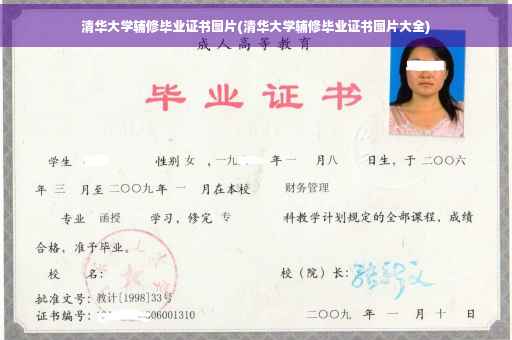 清华大学辅修毕业证书图片(清华大学辅修毕业证书图片大全)
成人高等教育
毕业证书
学生 性别 女 ，一九 年 一 月八 日生，于 二〇〇六
年 三 月至 二〇〇九 年 一 月在本校 财务管理
专业 函授 学习，修完 专 科教学计划规定的全部课程，成绩
合格，准予毕业。
校 名： 校（院）长：
批准文号：教计[1998]33号
证书编号： 06001310 二〇〇九 年 一 月 十 日